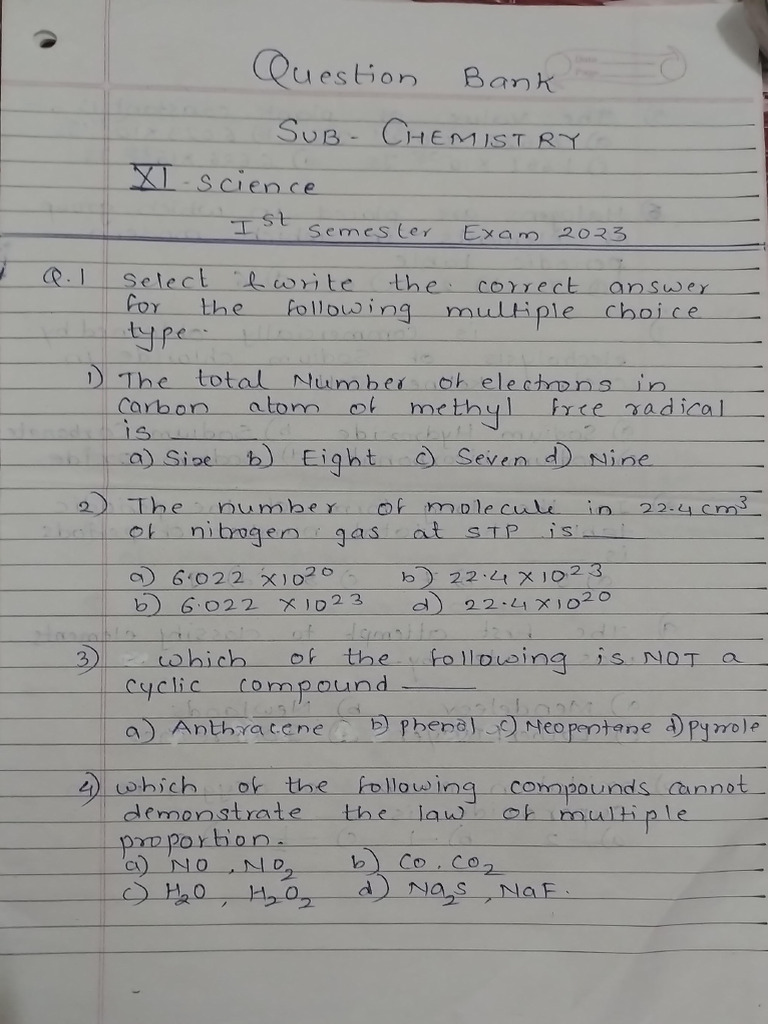 Question Bank
SUB - CHEMISTRY
XI - science
Ist semester Exam 2023
Q.1 select & write the correct answer
for the following multiple choice
type.
1) The total Number of electrons in
carbon atom of methyl free radical
is ____
a) Sixe b) Eight c) Seven d) Nine
2) The number of molecule in 22.4 cm³
of nitrogen gas at STP is ____
a) 6.022 × 10²⁰ b) 22.4 × 10²³
b) 6.022 × 10²³ d) 22.4 × 10²⁰
3) which of the following is NOT a
cyclic compound ____
a) Anthracene b) phenol c) Neopentane d) pyrrole
4) which of the following compounds cannot
demonstrate the law of multiple
proportion.
a) NO , NO₂ b) CO . CO₂
c) H₂O , H₂O₂ d) Na₂S , NaF .